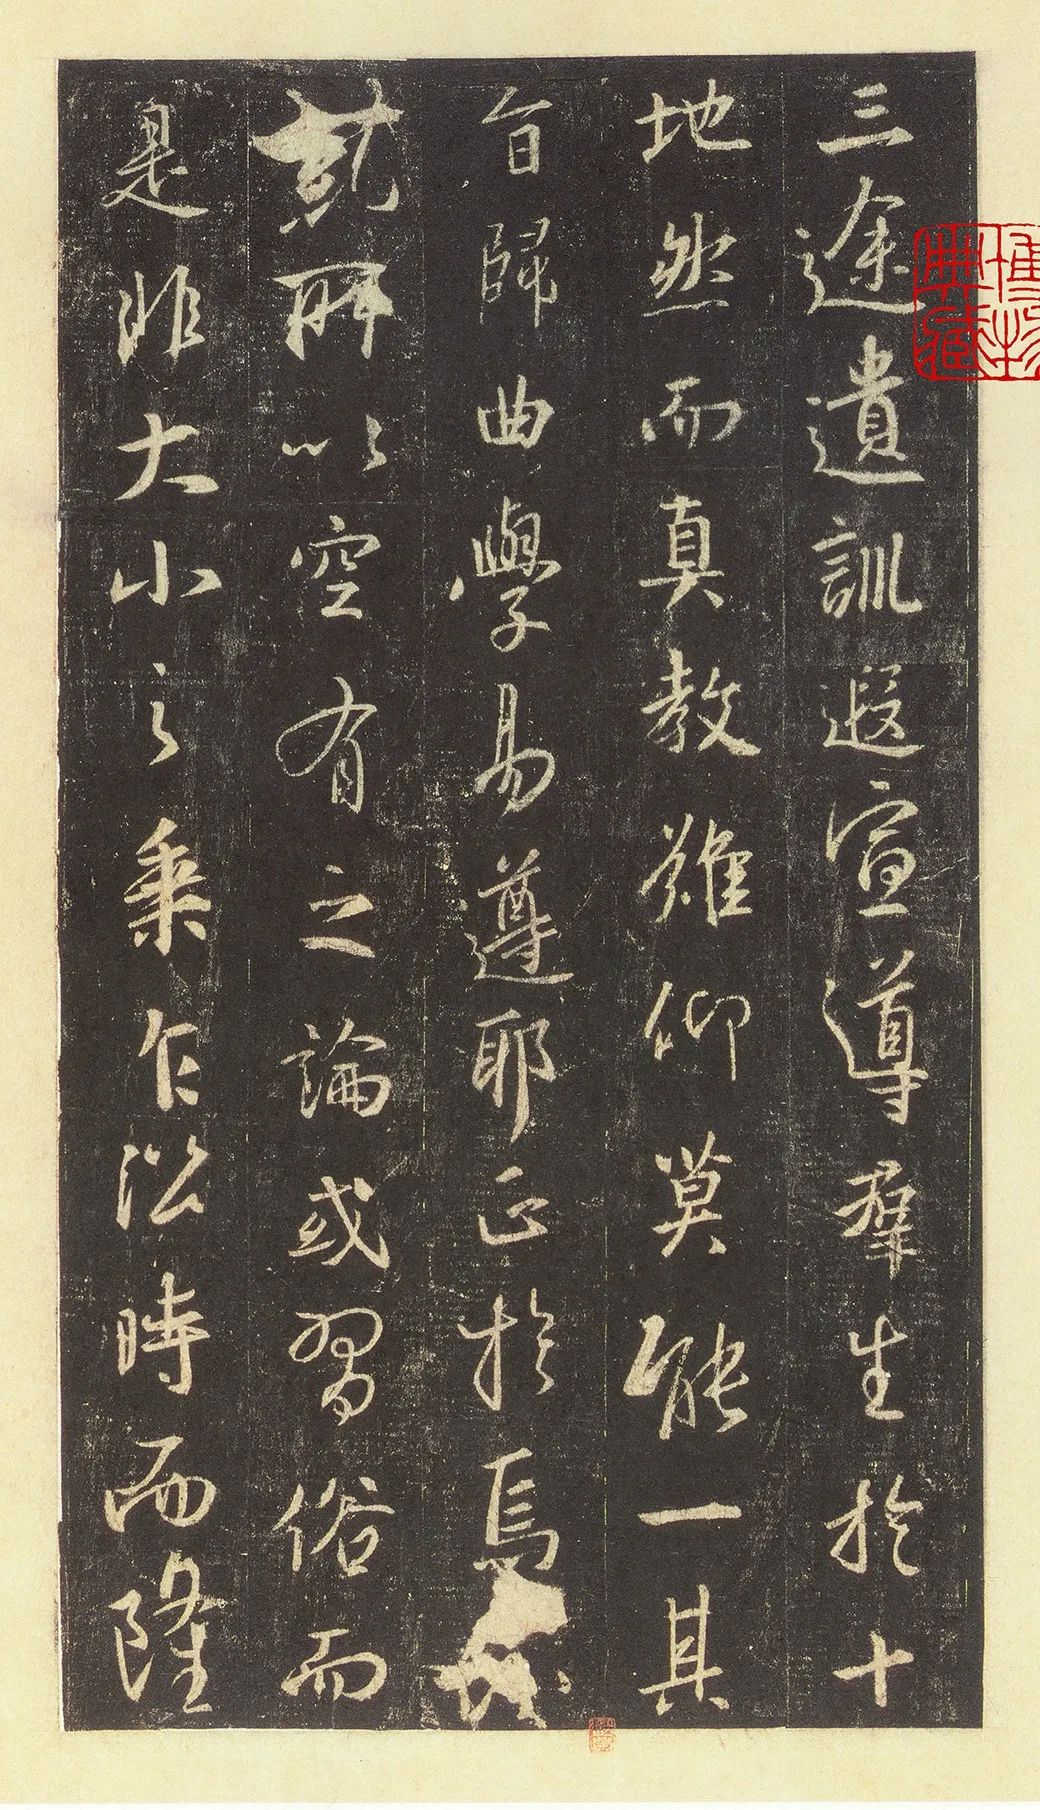 三途遺訓遐宣導羣生於十
地然而真教難仰莫能一其
旨歸曲學易遵耶正於焉
所以空有之論或習俗而
是非大小之乘乍沿時而隆
博物
典藏